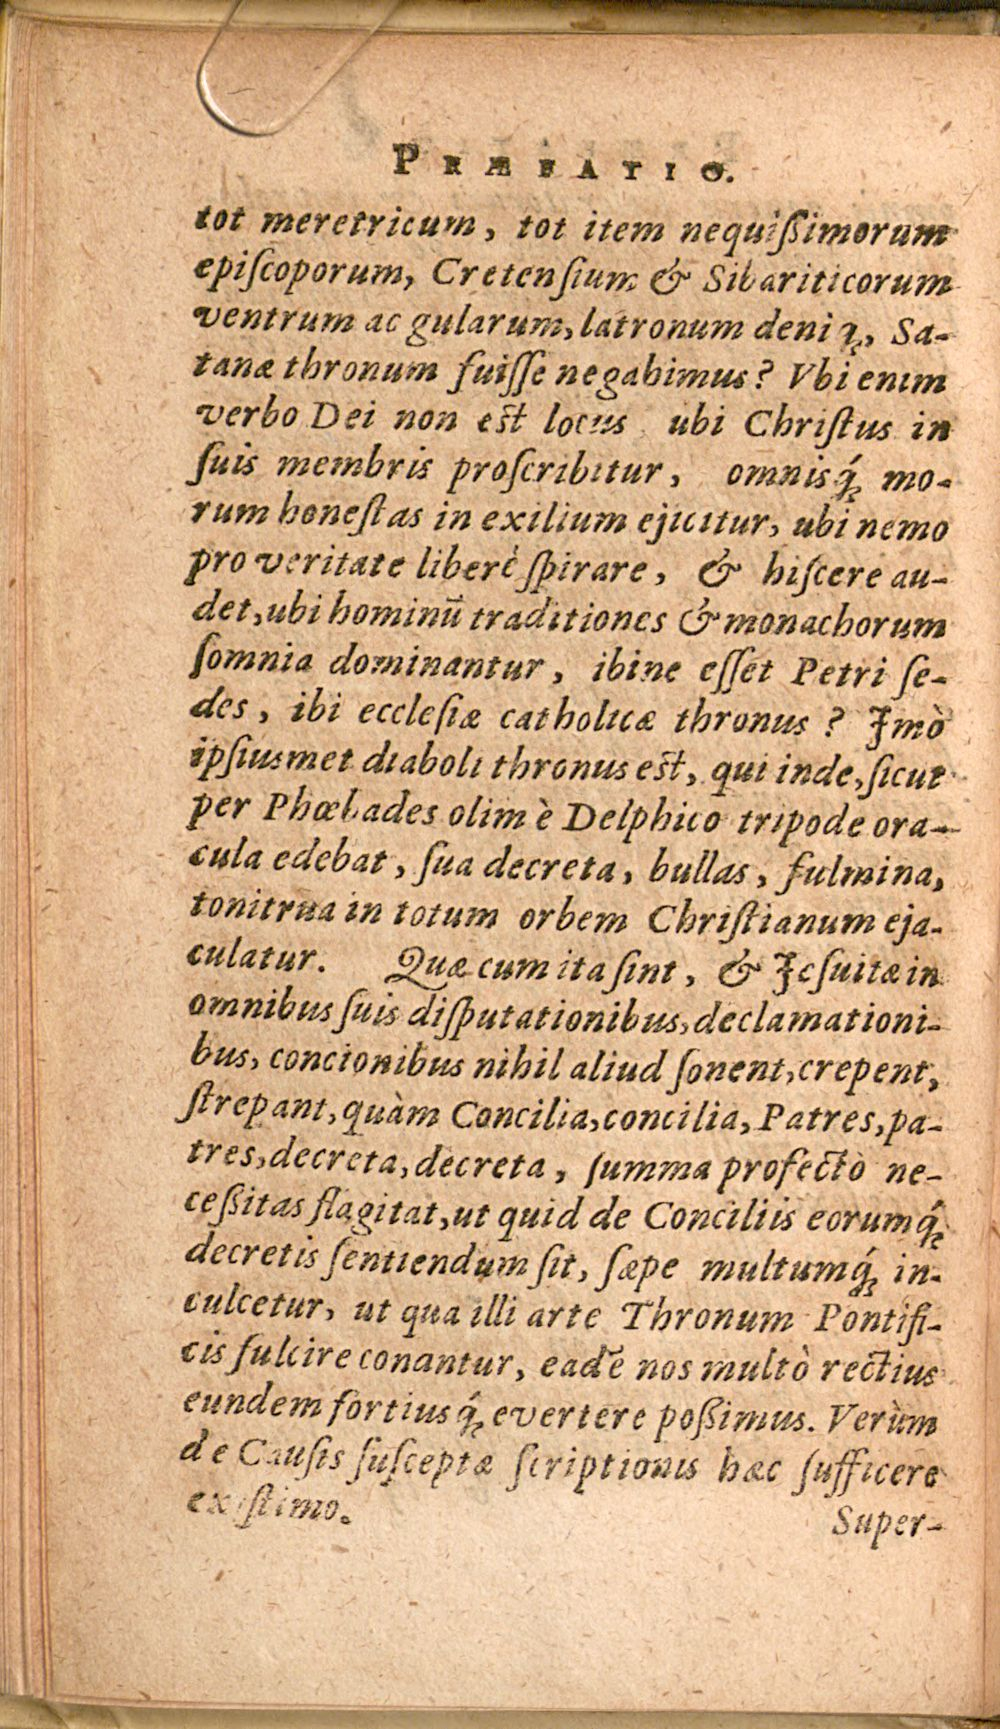 PRÆFATIO.
tot meretricum, tot item nequißimorum
epiſcoporum, Cretenſium & Sibariticorum
ventrum ac gularum, latronum deniq́ꝫ, Sa-
tanæ thronum fuiſſe negabimus? Vbi enim
verbo Dei non est locus ubi Chriſtus in
ſuis membris proſcribitur, omnisq́ꝫ mo-
rum honeſtas in exilium ejicitur, ubi nemo
pro veritate liberè ſpirare, & hiſcere au-
det, ubi hominū traditiones & monachorum
ſomnia dominantur, ibine eſſet Petri ſe-
des, ibi eccleſiæ catholicæ thronus? Imò
ipſiusmet diaboli thronus est, qui inde, ſicut
per Phœbades olim è Delphico tripode ora-
cula edebat, ſua decreta, bullas, fulmina,
tonitrua in totum orbem Chriſtianum eja-
culatur. Quæ cum ita ſint, & Jeſuitæ in
omnibus ſuis diſputationibus, declamationi-
bus, concionibus nihil aliud ſonent, crepent,
ſtrepant, quàm Concilia, concilia, Patres, pa-
tres, decreta, decreta, ſumma profectò ne-
ceßitas flagitat, ut quid de Conciliis eorumq́ꝫ
decretis ſentiendum ſit, ſæpe multumq́ꝫ in-
culcetur, ut qua illi arte Thronum Pontifi-
cis fulcire conantur, eadē nos multò rectius
eundem fortiusq́ꝫ evertere poßimus. Verùm
de Cauſis ſuſceptæ ſcriptionis hæc ſufficere
exiſtimo.
Super-